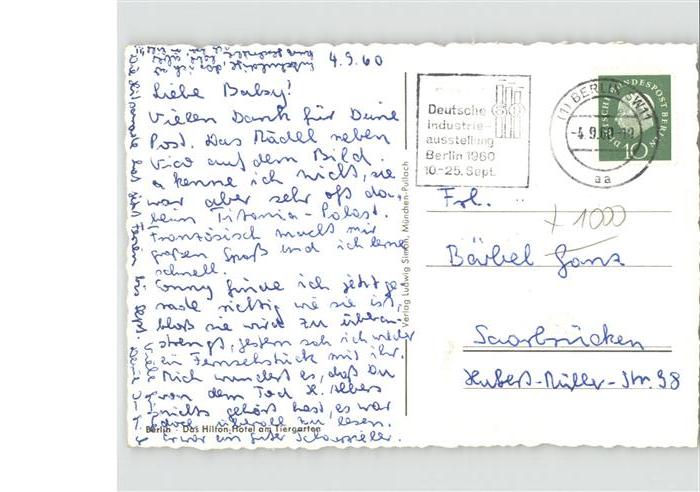 4.9.60
Liebe Babsy!
Vielen Dank für Deine
Post. Das Mädel neben
Vico auf dem Bild
kenne ich nicht, sie
war aber sehr oft da,
beim Titania-Palast.
Französisch macht mir
großen Spaß und ich lerne
schnell.
Conny finde ich jetzt ge
rade richtig wie sie ist,
bloß sie wird zu überan-
strengt, gestern sah ich wieder
ein Fernsehstück mit ihr.
Mich wundert es, daß Du
von dem Tod H. Albers
nichts gehört hast, es war
doch überall zu lesen.
Er war ein guter Schauspieler.
Berlin · Das Hilton-Hotel am Tiergarten
Verlag Ludwig Simon, München-Pullach
Deutsche
Industrie-
ausstellung
Berlin 1960
10.-25. Sept.
(1) BERLIN SW11
-4.9.60
aa
DEUTSCHE BUNDESPOST BERLIN
10
Frl.
+ 1000
Bärbel Ganz
Saarbrücken
Hubert-Müller-Str. 98